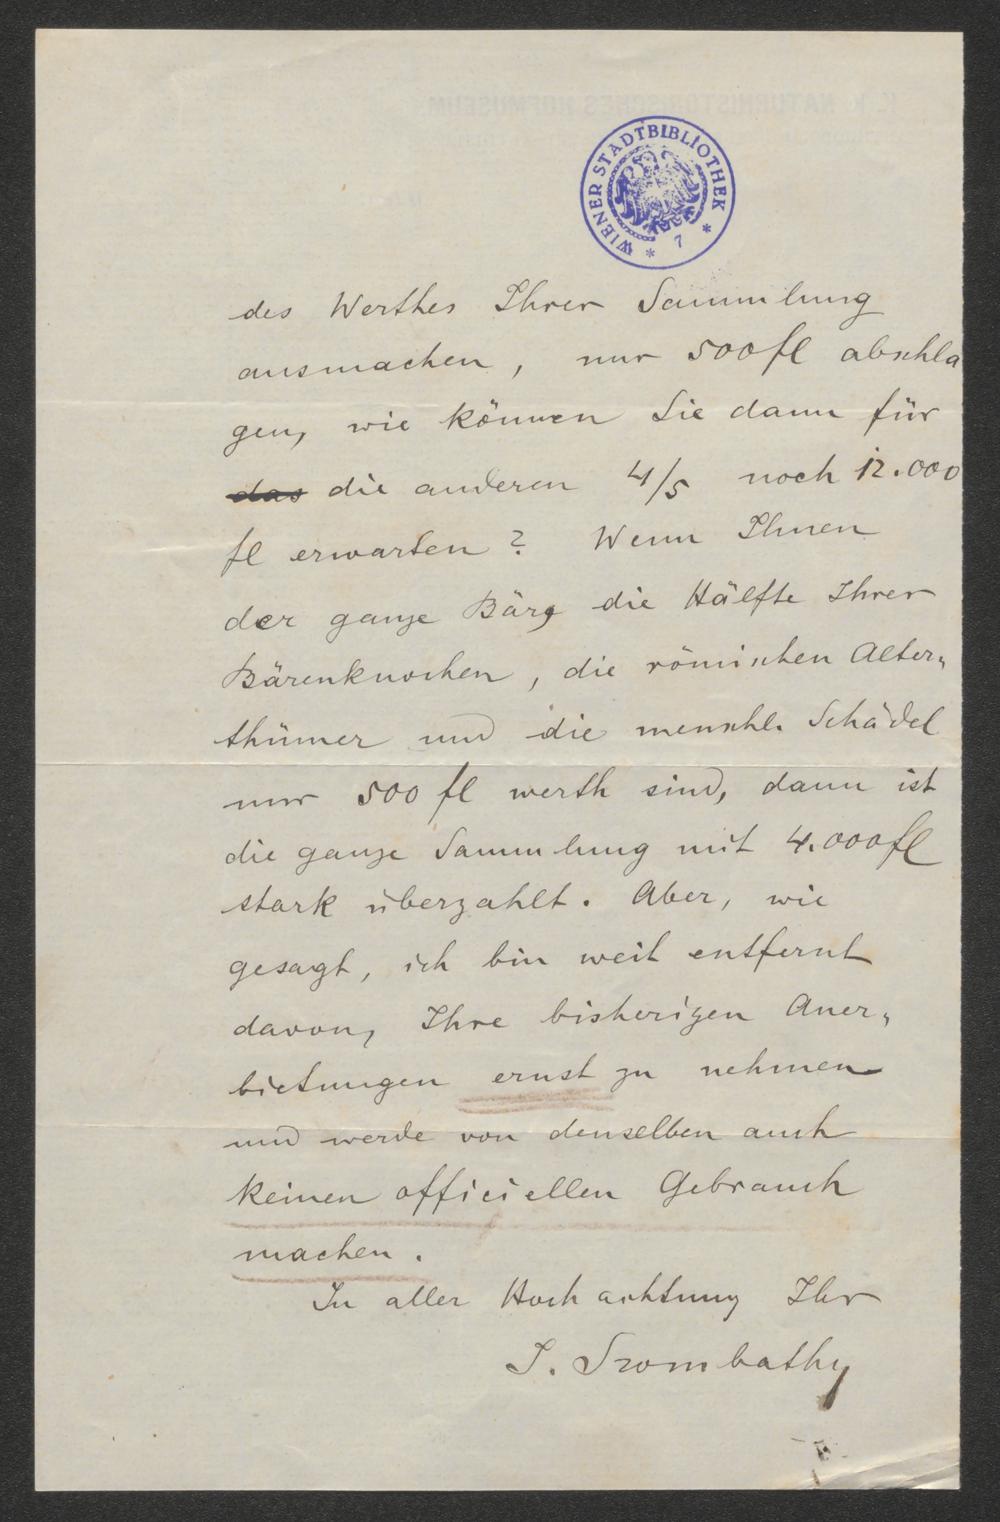 K. K. NATURHISTORISCHES HOFMUSEUM
WIENER STADTBIBLIOTHEK
* 7 *
des Werthes Ihrer Sammlung
ausmachen, nur 500 fl abschla
gen, wie können Sie dann für
das die anderen 4/5 noch 12.000
fl erwarten? Wenn Ihnen
der ganze Bär, die Hälfte Ihrer
Bärenknochen, die römischen Alter„
thümer und die menschl. Schädel
nur 500 fl werth sind, dann ist
die ganze Sammlung mit 4.000 fl
stark überzahlt. Aber, wie
gesagt, ich bin weit entfernt
davon, Ihre bisherigen Aner„
bietungen ernst zu nehmen
und werde von denselben auch
keinen officiellen Gebrauch
machen.
In aller Hochachtung Ihr
J. Szombathy